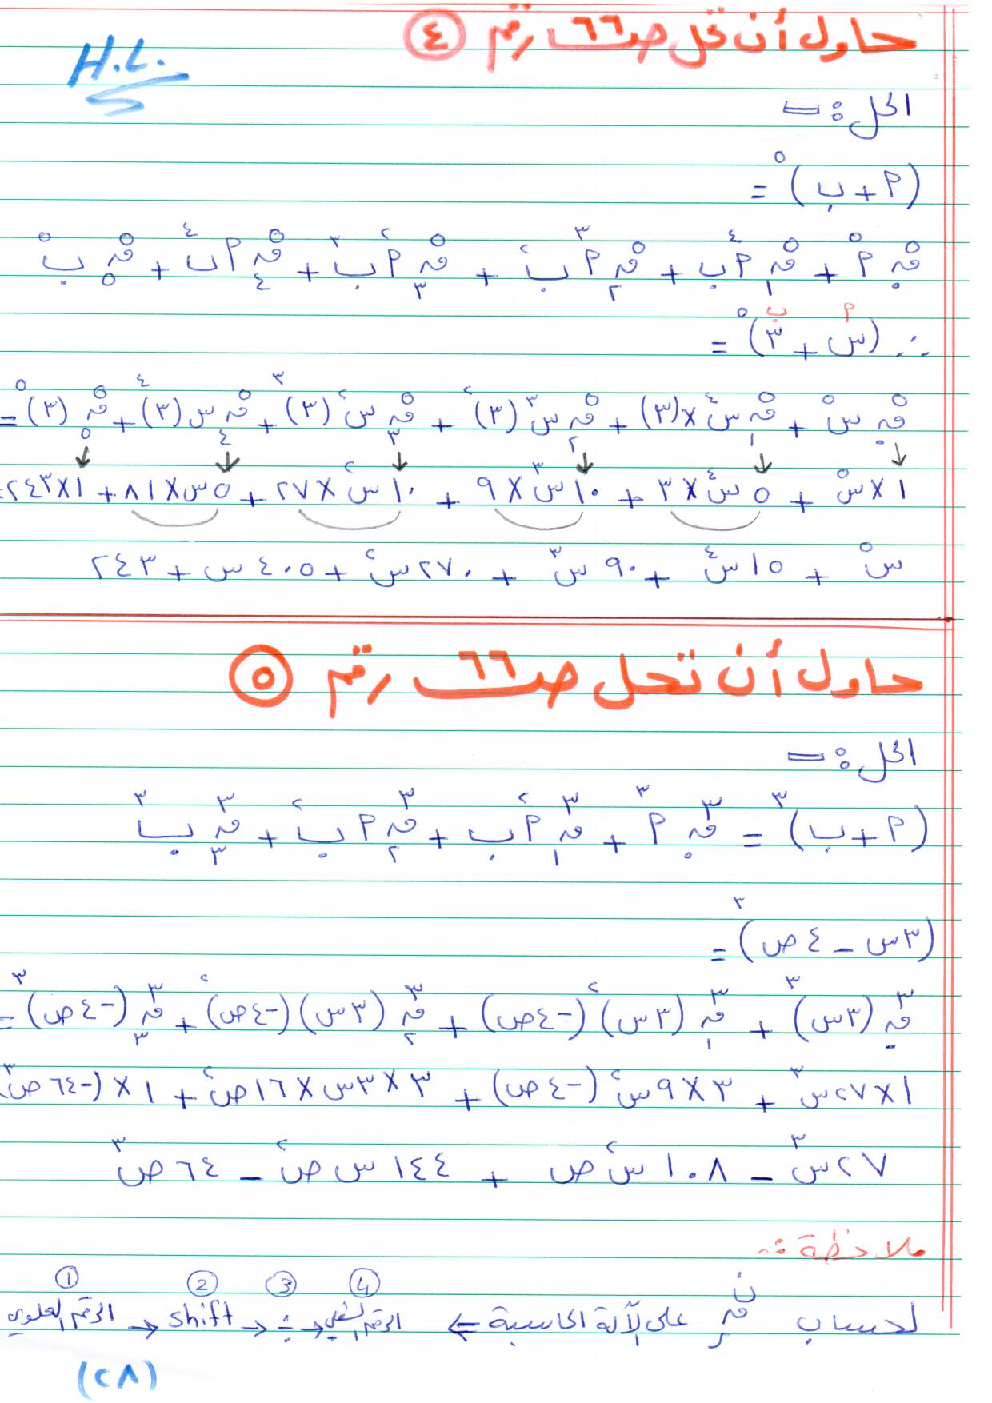 حاول أن تحل صـ٦٦ رقم ④
H.L.
الحل :-
(أ + ب)^٥ =
٥ق٠ أ^٥ + ٥ق١ أ^٤ ب + ٥ق٢ أ^٣ ب^٢ + ٥ق٣ أ^٢ ب^٣ + ٥ق٤ أ ب^٤ + ٥ق٥ ب^٥
أ ب
∴ (س + ٣)^٥ =
٥ق٠ س^٥ + ٥ق١ س^٤ × (٣) + ٥ق٢ س^٣ (٣)^٢ + ٥ق٣ س^٢ (٣)^٣ + ٥ق٤ س (٣)^٤ + ٥ق٥ (٣)^٥ =
١ × س^٥ + ٥ س^٤ × ٣ + ١٠ س^٣ × ٩ + ١٠ س^٢ × ٢٧ + ٥ س × ٨١ + ١ × ٢٤٣ =
س^٥ + ١٥ س^٤ + ٩٠ س^٣ + ٢٧٠ س^٢ + ٤٠٥ س + ٢٤٣
حاول أن تحل صـ٦٦ رقم ⑤
الحل :-
(أ + ب)^٣ = ٣ق٠ أ^٣ + ٣ق١ أ^٢ ب + ٣ق٢ أ ب^٢ + ٣ق٣ ب^٣
(٣س - ٤ص)^٣ =
٣ق٠ (٣س)^٣ + ٣ق١ (٣س)^٢ (-٤ص) + ٣ق٢ (٣س) (-٤ص)^٢ + ٣ق٣ (-٤ص)^٣ =
١ × ٢٧س^٣ + ٣ × ٩س^٢ (-٤ص) + ٣ × ٣س × ١٦ص^٢ + ١ × (-٦٤ص^٣)
٢٧س^٣ - ١٠٨ س^٢ ص + ١٤٤ س ص^٢ - ٦٤ ص^٣
ملاحظة :-
① ② ③ ④
لحساب نقر على الآلة الحاسبة ⇐ الرقم العلوي → shift → ÷ → الرقم السفلي
(٢٨)